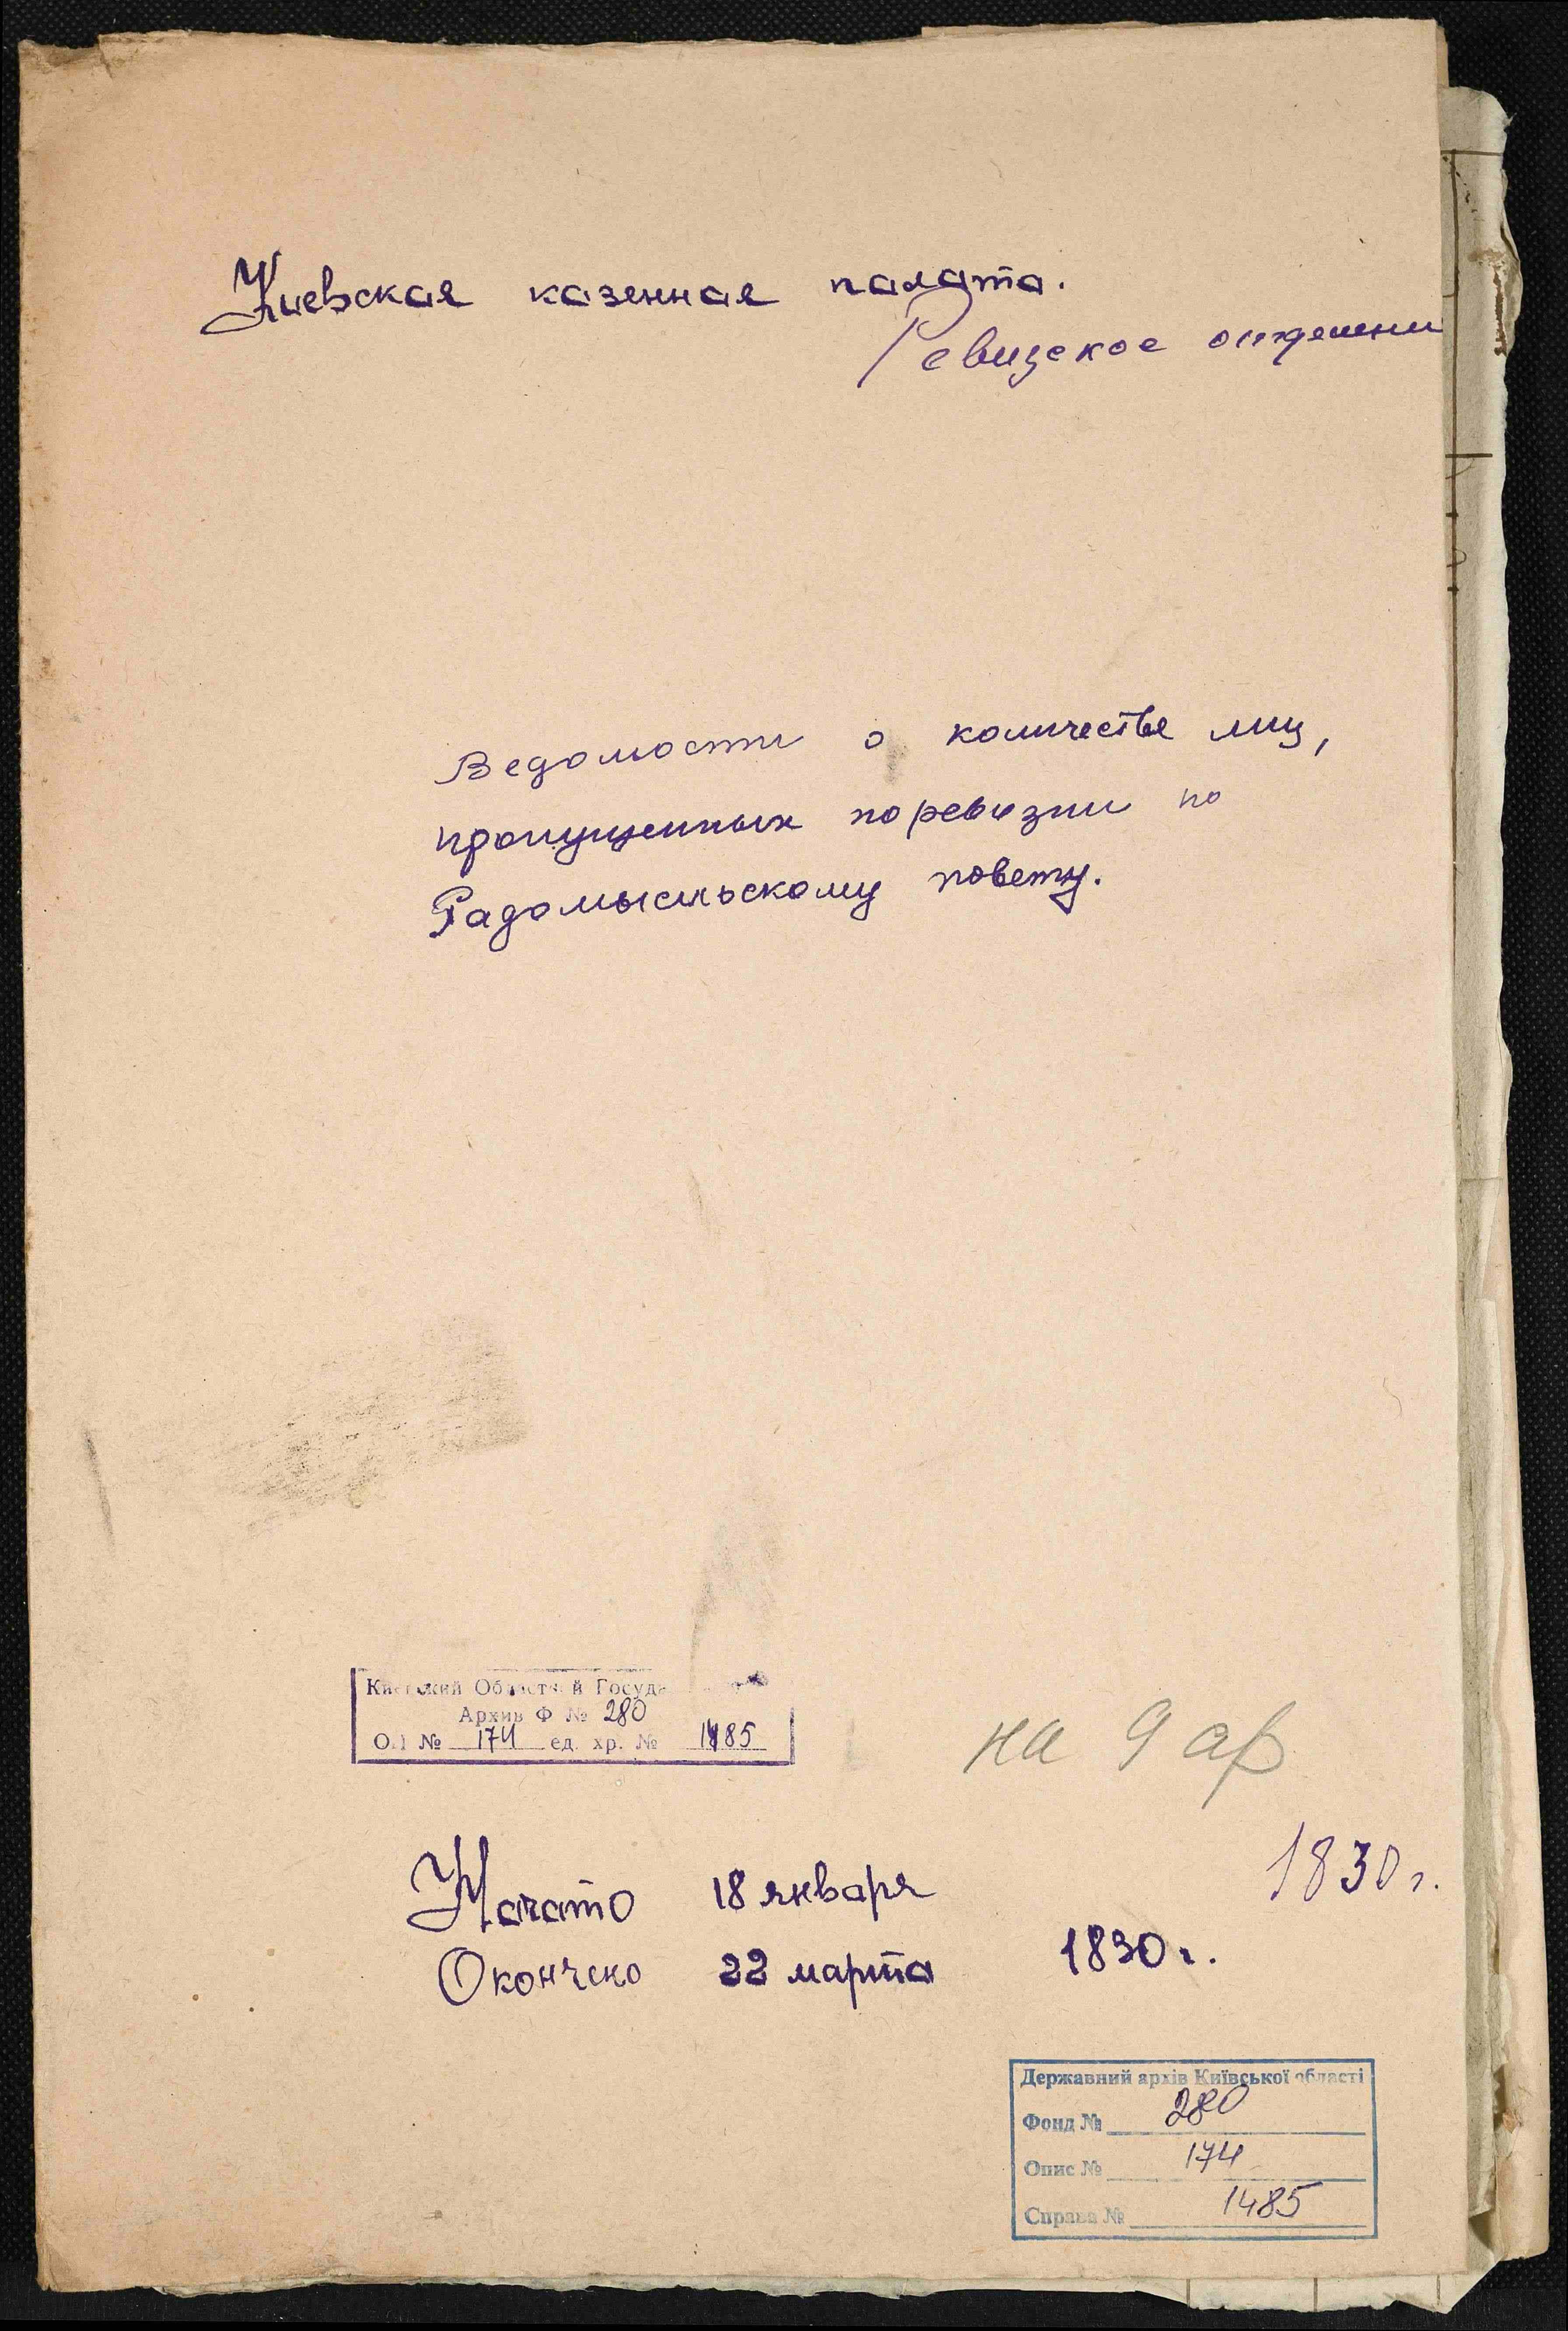 Киевская казенная палата.
Ревизское отделени
Ведомости о количестве лиц,
пропущенных по ревизии по
Радомысльскому повету.
Киевский Областной Госуда
Архив Ф № 280
Оп № 174 ед. хр. № 1485
на 9 ар
1830 г.
Начато 18 января
Окончено 22 марта 1830 г.
Державний архів Київської області
Фонд № 280
Опис № 174
Справа № 1485